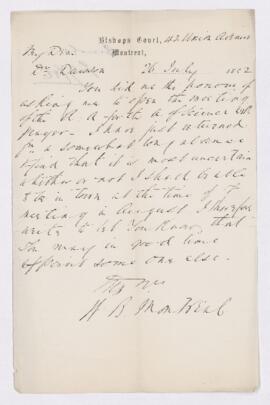 Bishops Court, 42 Union Avenue
Montreal,
My Dear
Dr. Dawson 26 July 1882
You did me the honour of
asking me to open the meeting
of the A. A. for the A. of Science with
prayer. I have just returned
from a somewhat long absence
& find that it is most uncertain
whether or not I should be able
to be in town at the time of the
meeting in August. I therefore
write to let you know, that
you may in good time
appoint some one else.
W B Montreal